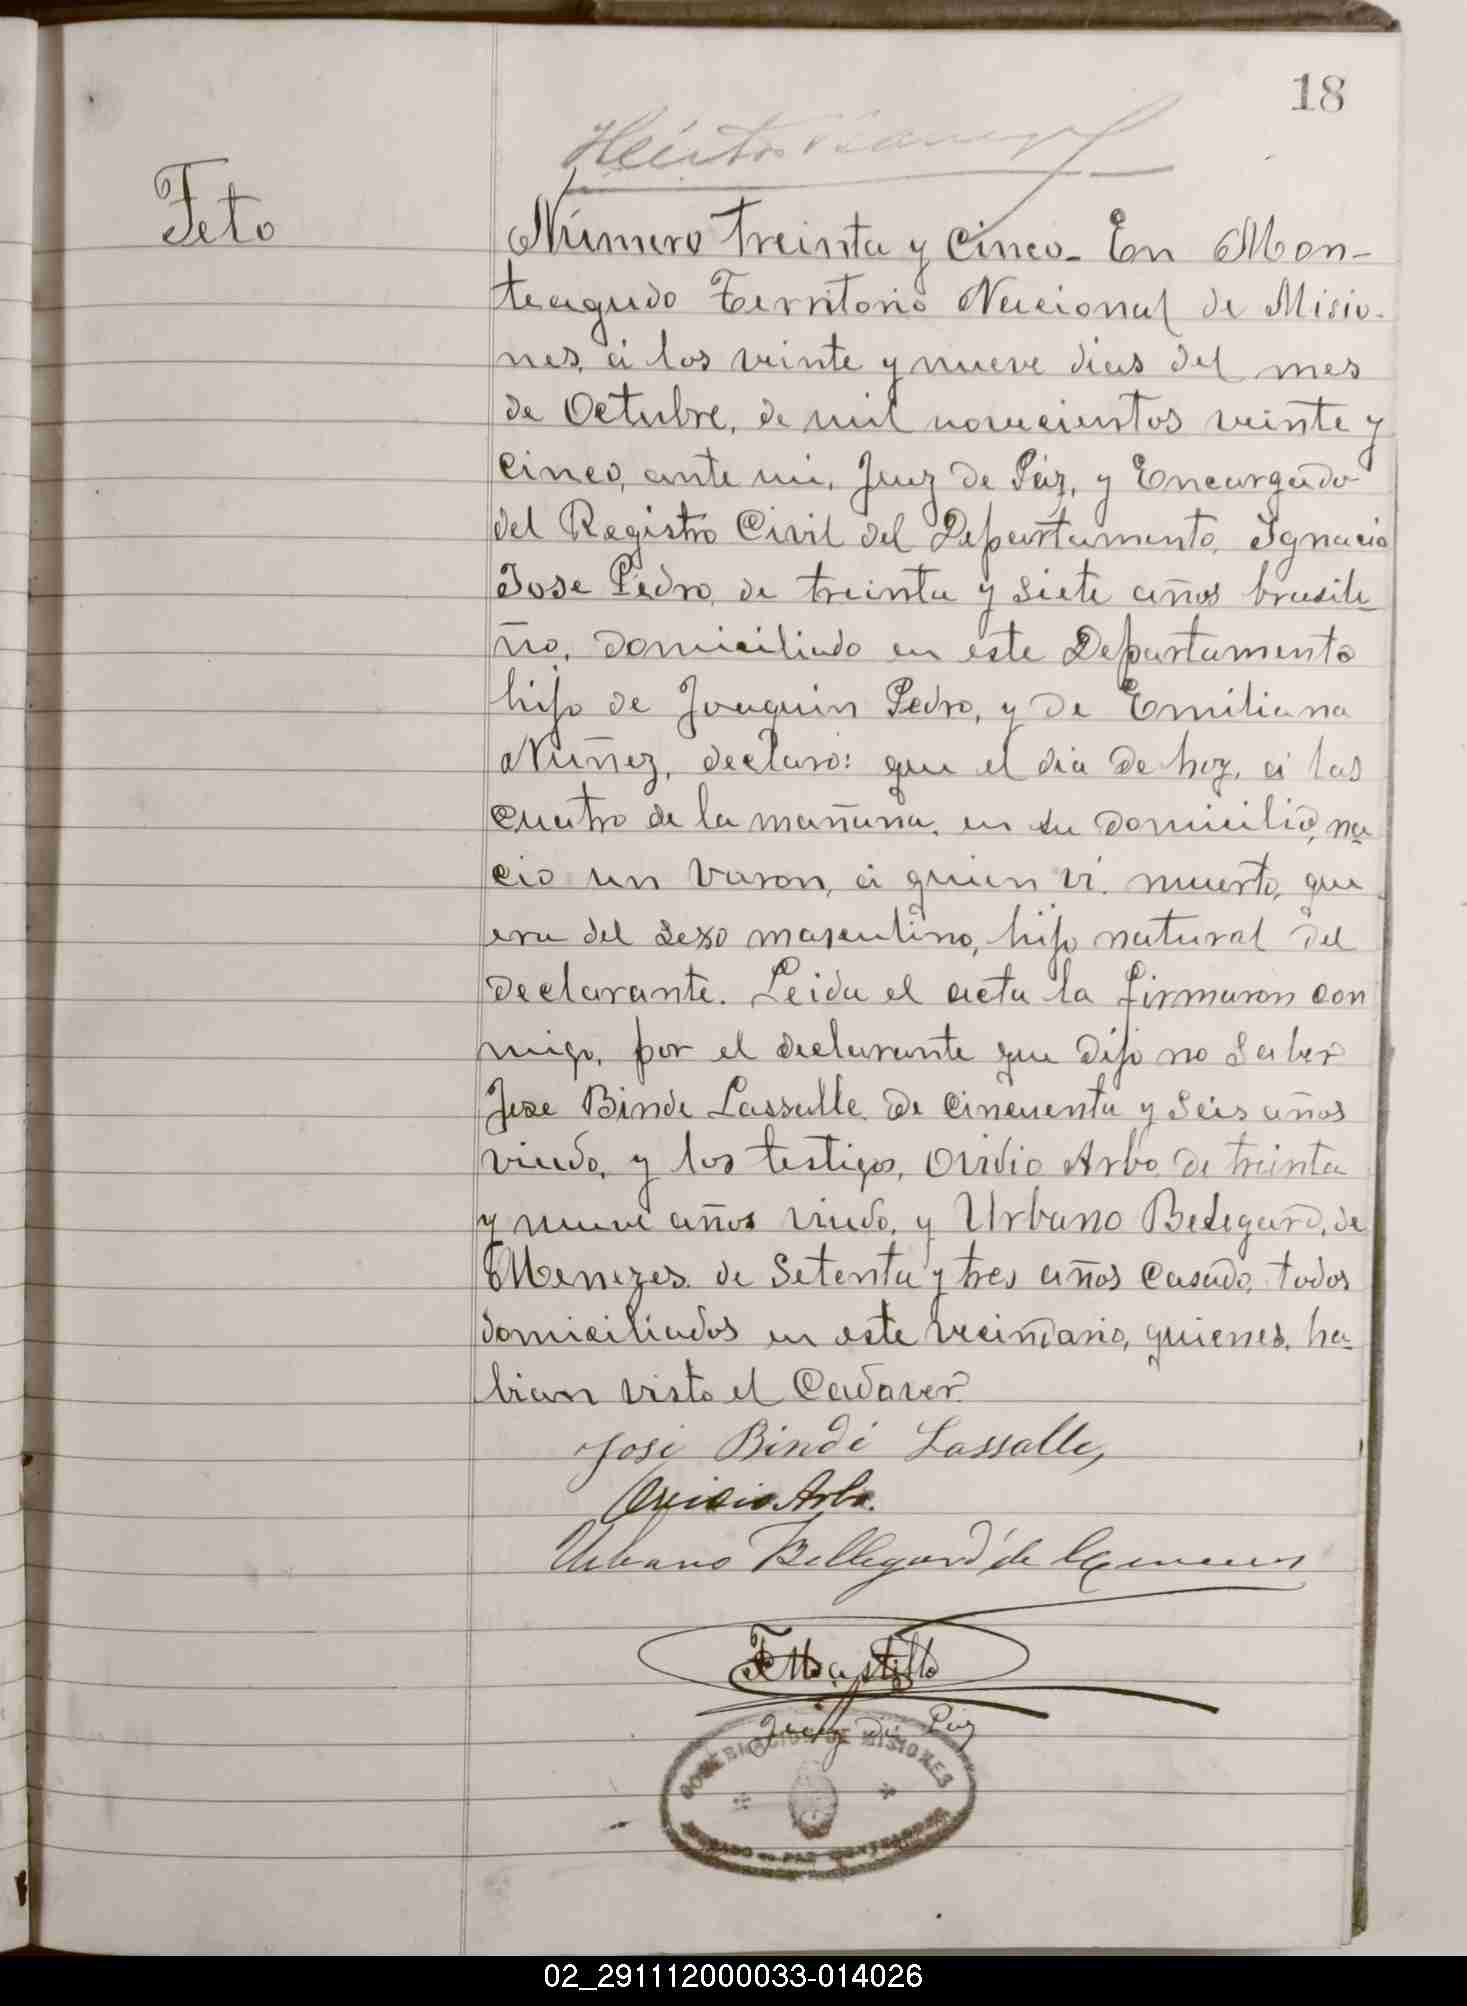 18
Feto
Número treinta y Cinco_ En Mon-
teagudo Territorio Nacional de Misio-
nes, á los veinte y nueve dias del mes
de Octubre, de mil novecientos veinte y
Cinco, ante mi, Juez de Páz, y Encargado
del Registro Civil del Departamento, Ignacio
Jose Pedro, de treinta y siete años brasile_
ño, domiciliado en este Departamento
hijo de Joaquin Pedro, y de Emiliana
Nuñez, declaro: que el dia de hoy, á las
Cuatro de la mañana, en su domicilio, na_
cio un varon, á quien ví muerto, que
era del sexo masculino, hijo natural del
declarante. Leida el acta la firmaron con
migo, por el declarante que dijo no saber
Jose Binde Lassalle de Cincuenta y seis años
viudo, y los testigos, Ovidio Arbo, de treinta
y nueve años viudo, y Urbano Belegard, de
Menezes de Setenta y tres años Casado, todos
domiciliados en este vecindario, quienes, ha_
bian visto el Cadaver
José Bindé Lassalle,
Ovidio Arbo.
Urbano Bellegard de
Juez de Paz
GOBERNACION DE MISIONES
02_291112000033-014026